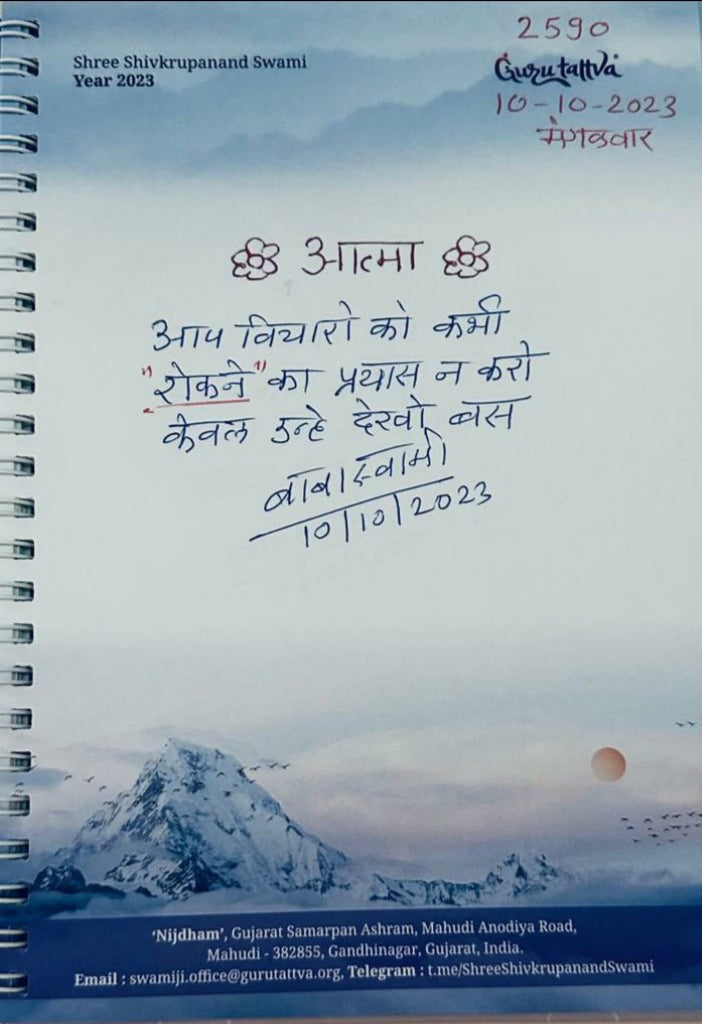 2590
Shree Shivkrupanand Swami
Gurutattva
Year 2023
10-10-2023
मंगळवार
आत्मा
आप विचारो को कभी
"रोकने" का प्रयास न करो
केवल उन्हे देखो बस
बाबास्वामी
10/10/2023
'Nijdham', Gujarat Samarpan Ashram, Mahudi Anodiya Road,
Mahudi - 382855, Gandhinagar, Gujarat, India.
Email : swamiji.office@gurutattva.org, Telegram : t.me/ShreeShivkrupanandSwami